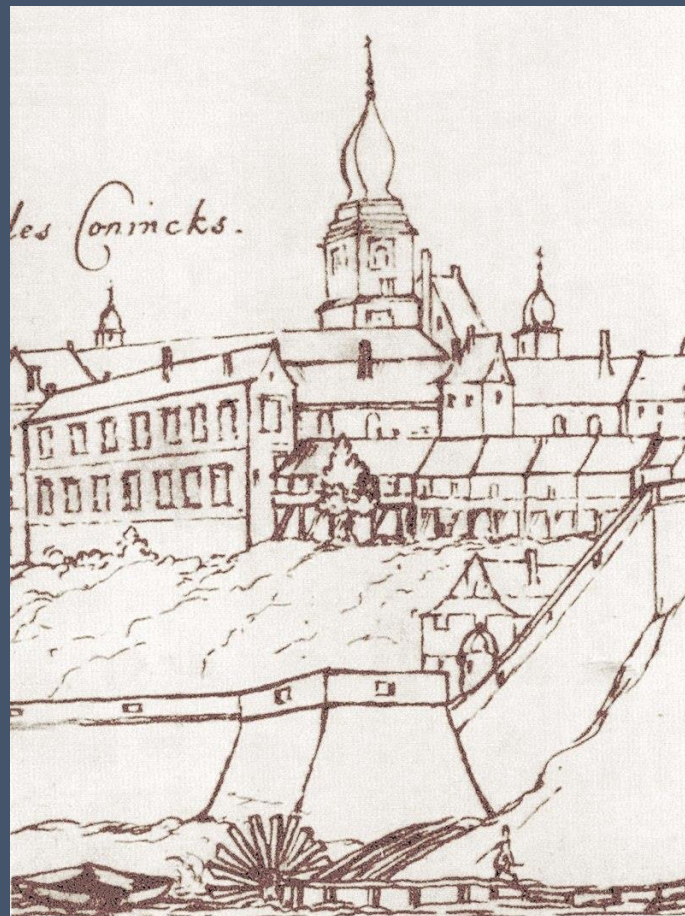 les Conincks.